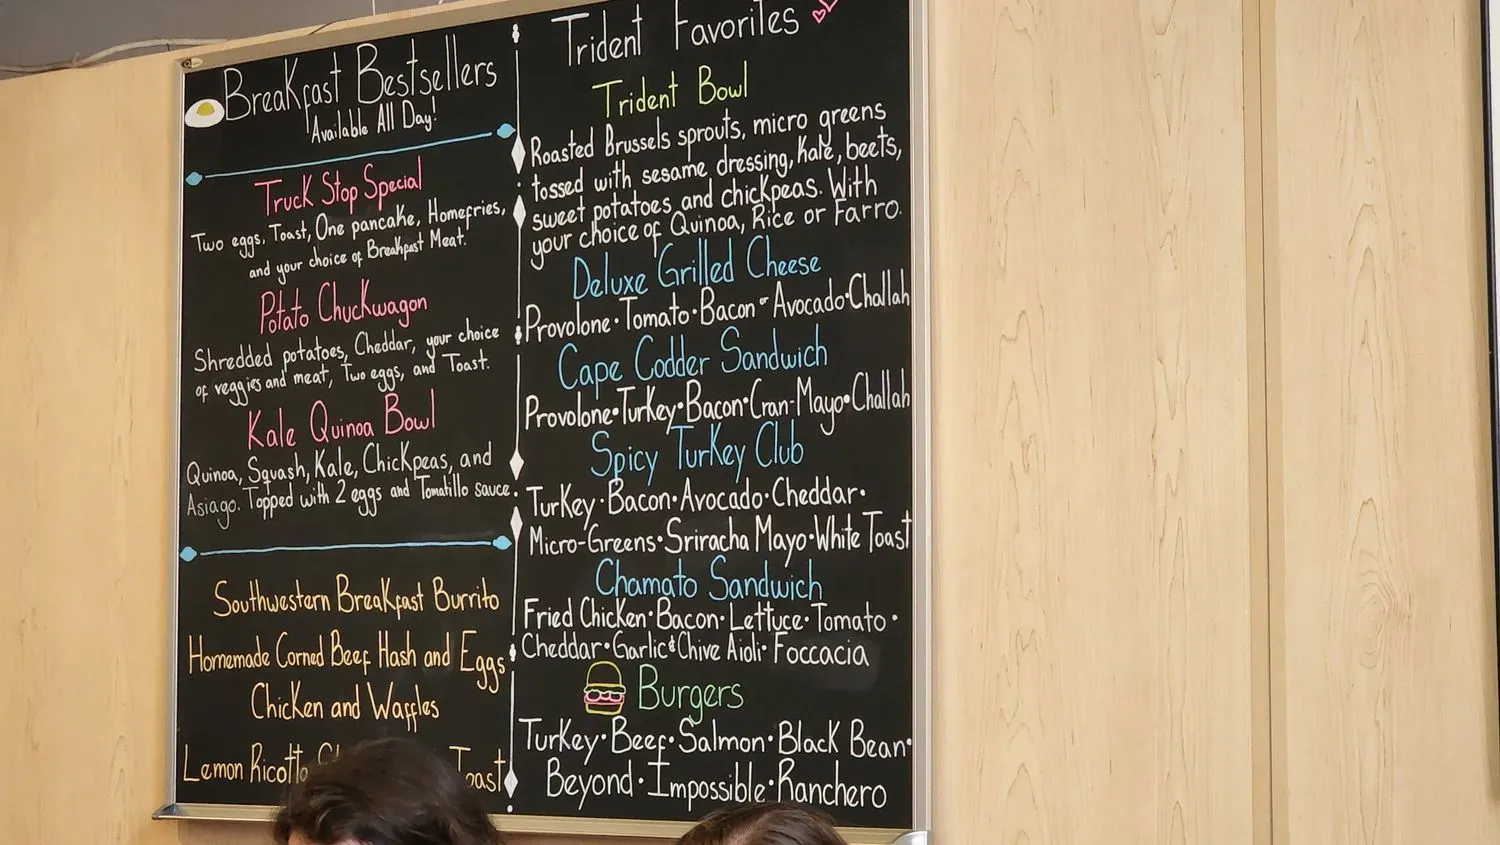 Breakfast Bestsellers
Available All Day!
Truck Stop Special
Two eggs, Toast, One pancake, Homefries,
and your choice of Breakfast Meat.
Potato Chuckwagon
Shredded potatoes, Cheddar, your choice
of veggies and meat, Two eggs, and Toast.
Kale Quinoa Bowl
Quinoa, Squash, Kale, Chickpeas, and
Asiago. Topped with 2 eggs and Tomatillo sauce.
Southwestern Breakfast Burrito
Homemade Corned Beef Hash and Eggs
Chicken and Waffles
Lemon Ricotta Toast
Trident Favorites
Trident Bowl
Roasted Brussels sprouts, micro greens
tossed with sesame dressing, Kale, beets,
sweet potatoes and chickpeas. With
your choice of Quinoa, Rice or Farro.
Deluxe Grilled Cheese
Provolone·Tomato·Bacon or Avocado·Challah
Cape Codder Sandwich
Provolone·Turkey·Bacon·Cran-Mayo·Challah
Spicy Turkey Club
Turkey·Bacon·Avocado·Cheddar·
Micro-Greens·Sriracha Mayo·White Toast
Chamato Sandwich
Fried Chicken·Bacon·Lettuce·Tomato·
Cheddar·Garlic&Chive Aioli·Foccacia
Burgers
Turkey·Beef·Salmon·Black Bean·
Beyond·Impossible·Ranchero